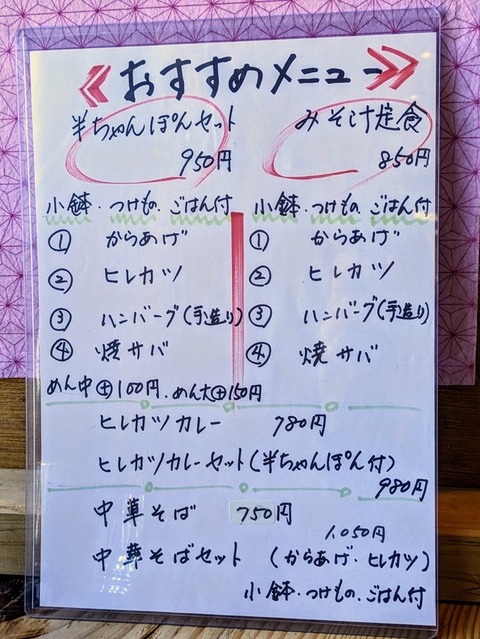 おすすめメニュー
半ちゃんぽんセット
950円
小鉢・つけもの、ごはん付
① からあげ
② ヒレカツ
③ ハンバーグ(手造り)
④ 焼サバ
めん中⊕100円、めん大⊕150円
みそ汁定食
850円
小鉢・つけもの、ごはん付
① からあげ
② ヒレカツ
③ ハンバーグ(手造り)
④ 焼サバ
ヒレカツカレー 780円
ヒレカツカレーセット(半ちゃんぽん付)
980円
中華そば 750円
1,050円
中華そばセット (からあげ・ヒレカツ)
小鉢・つけもの、ごはん付